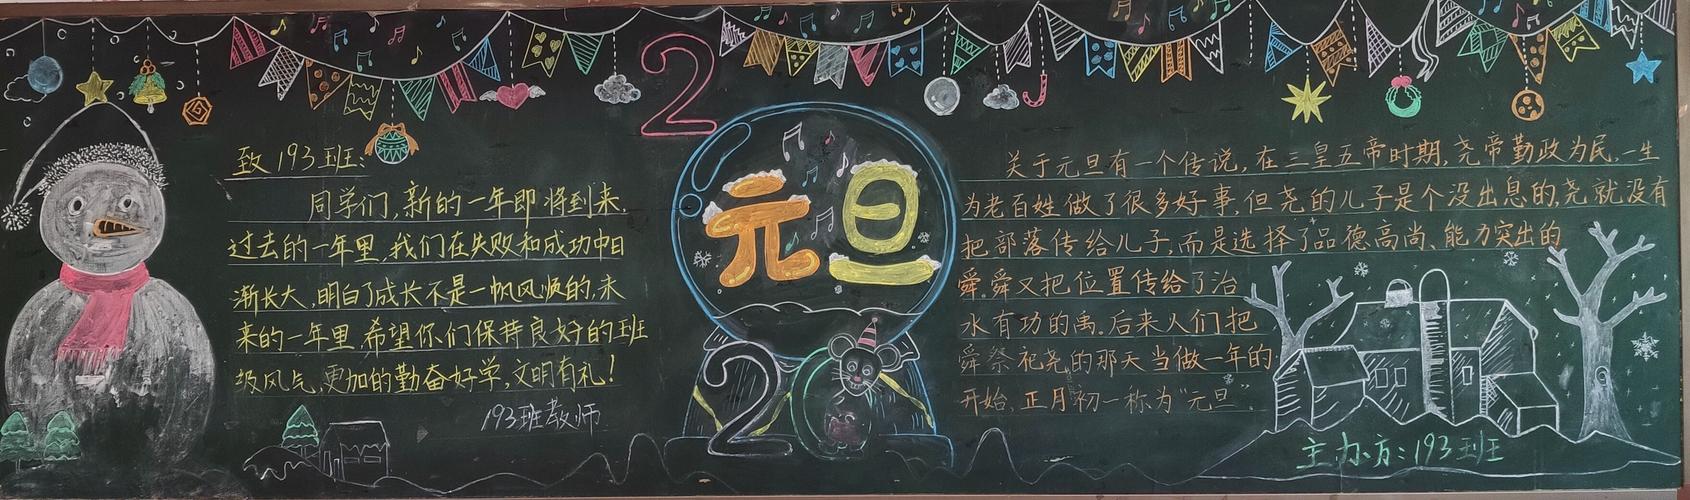 致193班:
同学们,新的一年即将到来.
过去的一年里,我们在失败和成功中日
渐长大,明白了成长不是一帆风顺的,未
来的一年里,希望你们保持良好的班
级风气,更加的勤奋好学,文明有礼!
193班教师
2
元旦
2
关于元旦有一个传说,在三皇五帝时期,尧帝勤政为民,一生
为老百姓做了很多好事,但尧的儿子是个没出息的,尧就没有
把部落传给儿子,而是选择了品德高尚、能力突出的
舜,舜又把位置传给了治
水有功的禹.后来人们把
舜祭祀尧的那天当做一年的
开始,正月初一称为“元旦”.
主办方:193班